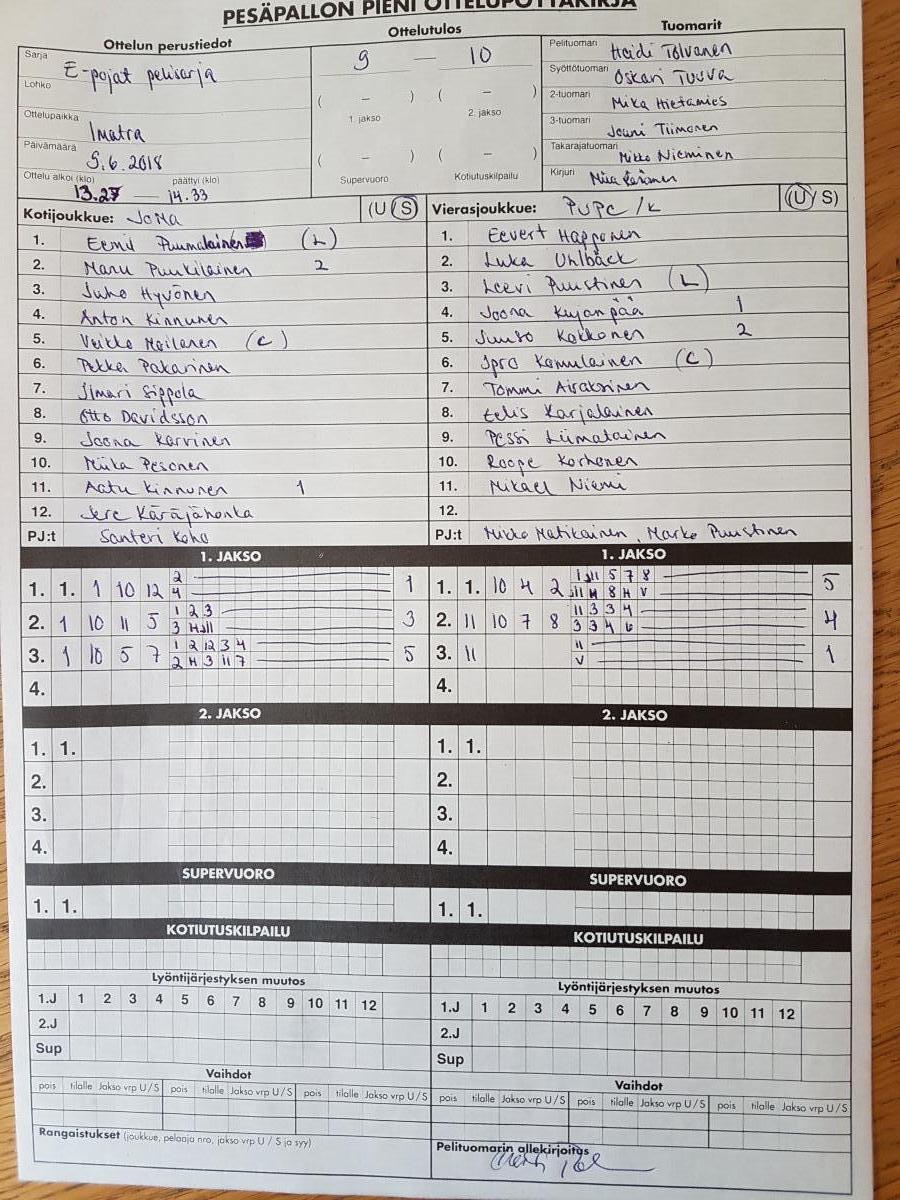 PESÄPALLON PIENI OTTELUPÖYTÄKIRJA
Ottelun perustiedot
Ottelutulos
Tuomarit
Sarja E-pojat pelisarja
Lohko
Ottelupaikka Imatra
Päivämäärä 9.6.2018
Ottelu alkoi (klo) päättyi (klo)
13.27 — 14.33
9 — 10
( – ) ( – )
1. jakso 2. jakso
( – ) ( – )
Supervuoro Kotiutuskilpailu
Pelituomari Heidi Tolvanen
Syöttötuomari Oskari Tuuva
2-tuomari Mika Hietamies
3-tuomari Jouni Tiimonen
Takarajatuomari Mikko Nieminen
Kirjuri Miia
Kotijoukkue: JoMa (U S)
1. Eemil Puumalainen (L)
2. Manu Puukilainen 2
3. Juho Hyvönen
4. Anton Kinnunen
5. Veikko Moilanen (C)
6. Pekka Pakarinen
7. Ilmari Sippola
8. Otto Davidsson
9. Joona Karvinen
10. Miila Pesonen
11. Aatu Kinnunen 1
12. Jere Käräjähonka
PJ:t Santeri Koho
Vierasjoukkue: PuPe/k (U S)
1. Eevert Happonen
2. Luka Uhlbäck
3. Leevi Puustinen (L)
4. Joona Kujanpää 1
5. Juuso Kokkonen 2
6. Ipro Komulainen (C)
7. Tommi Airaksinen
8. Eelis Karjalainen
9. Pessi Liimatainen
10. Roope Korhonen
11. Mikael Niemi
12.
PJ:t Mikko Matikainen, Marko Puustinen
1. JAKSO
1. 1. 1 10 12 2 1
4
2. 1 10 11 5 1 2 3 3
3 H 11
3. 1 10 5 7 1 2 12 3 4 5
2 H 3 11 7
4.
2. JAKSO
1. 1.
2.
3.
4.
SUPERVUORO
1. 1.
KOTIUTUSKILPAILU
Lyöntijärjestyksen muutos
1.J 1 2 3 4 5 6 7 8 9 10 11 12
2.J
Sup
Vaihdot
pois tilalle Jakso vrp U/S pois tilalle Jakso vrp U/S pois tilalle Jakso vrp U/S
Rangaistukset (joukkue, pelaaja nro, jakso vrp U/S ja syy)
1. JAKSO
1. 1. 10 4 2 1 11 5 7 8 5
11 H 8 H V
2. 11 10 7 8 11 3 3 4 4
3 3 4 6
3. 11 11 1
V
4.
2. JAKSO
1. 1.
2.
3.
4.
SUPERVUORO
1. 1.
KOTIUTUSKILPAILU
Lyöntijärjestyksen muutos
1.J 1 2 3 4 5 6 7 8 9 10 11 12
2.J
Sup
Vaihdot
pois tilalle Jakso vrp U/S pois tilalle Jakso vrp U/S pois tilalle Jakso vrp U/S
Pelituomarin allekirjoitus